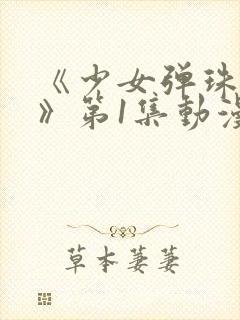 《少女弹珠
》第1集動漫
草本萋萋